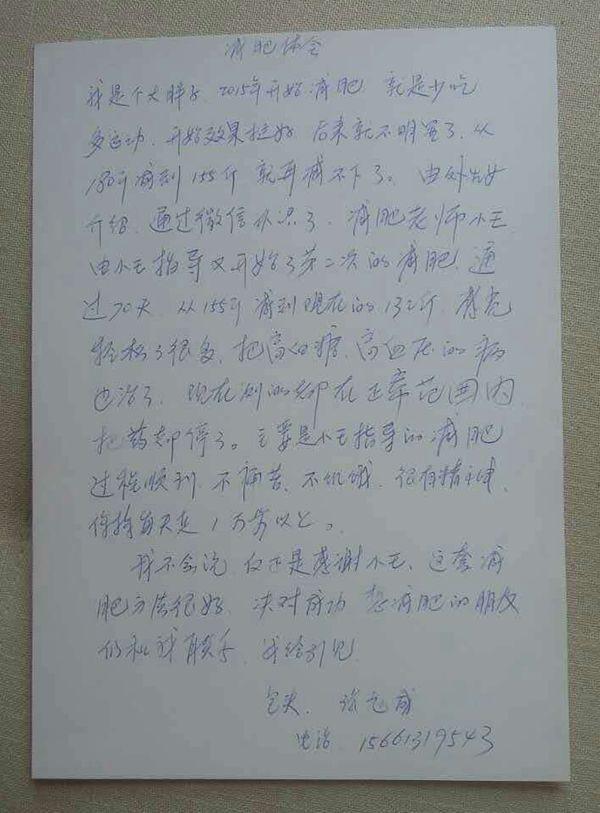 减肥体会
我是个大胖子, 2015年开始减肥, 就是少吃
多运动, 开始效果挺好, 后来就不明显了, 从
180斤减到155斤 就再减不下了。由外
介绍, 通过微信认识了, 减肥老师小王,
由小王指导又开始了第二次的减肥, 通
过70天, 从155斤减到现在的132斤,
轻松了很多, 把高血糖, 高血压的病
也治了, 现在测的都在正常范围内,
把药都停了。主要是小王指导的减肥
过程顺利, 不痛苦, 不饥饿, 很有精神,
保持每天走1万步以上。
我不会说, 但还是感谢小王, 这套减
肥方法很好, 决对成功 想减肥的朋友
们和我联系, 我给引见
包头
电话 15661319543